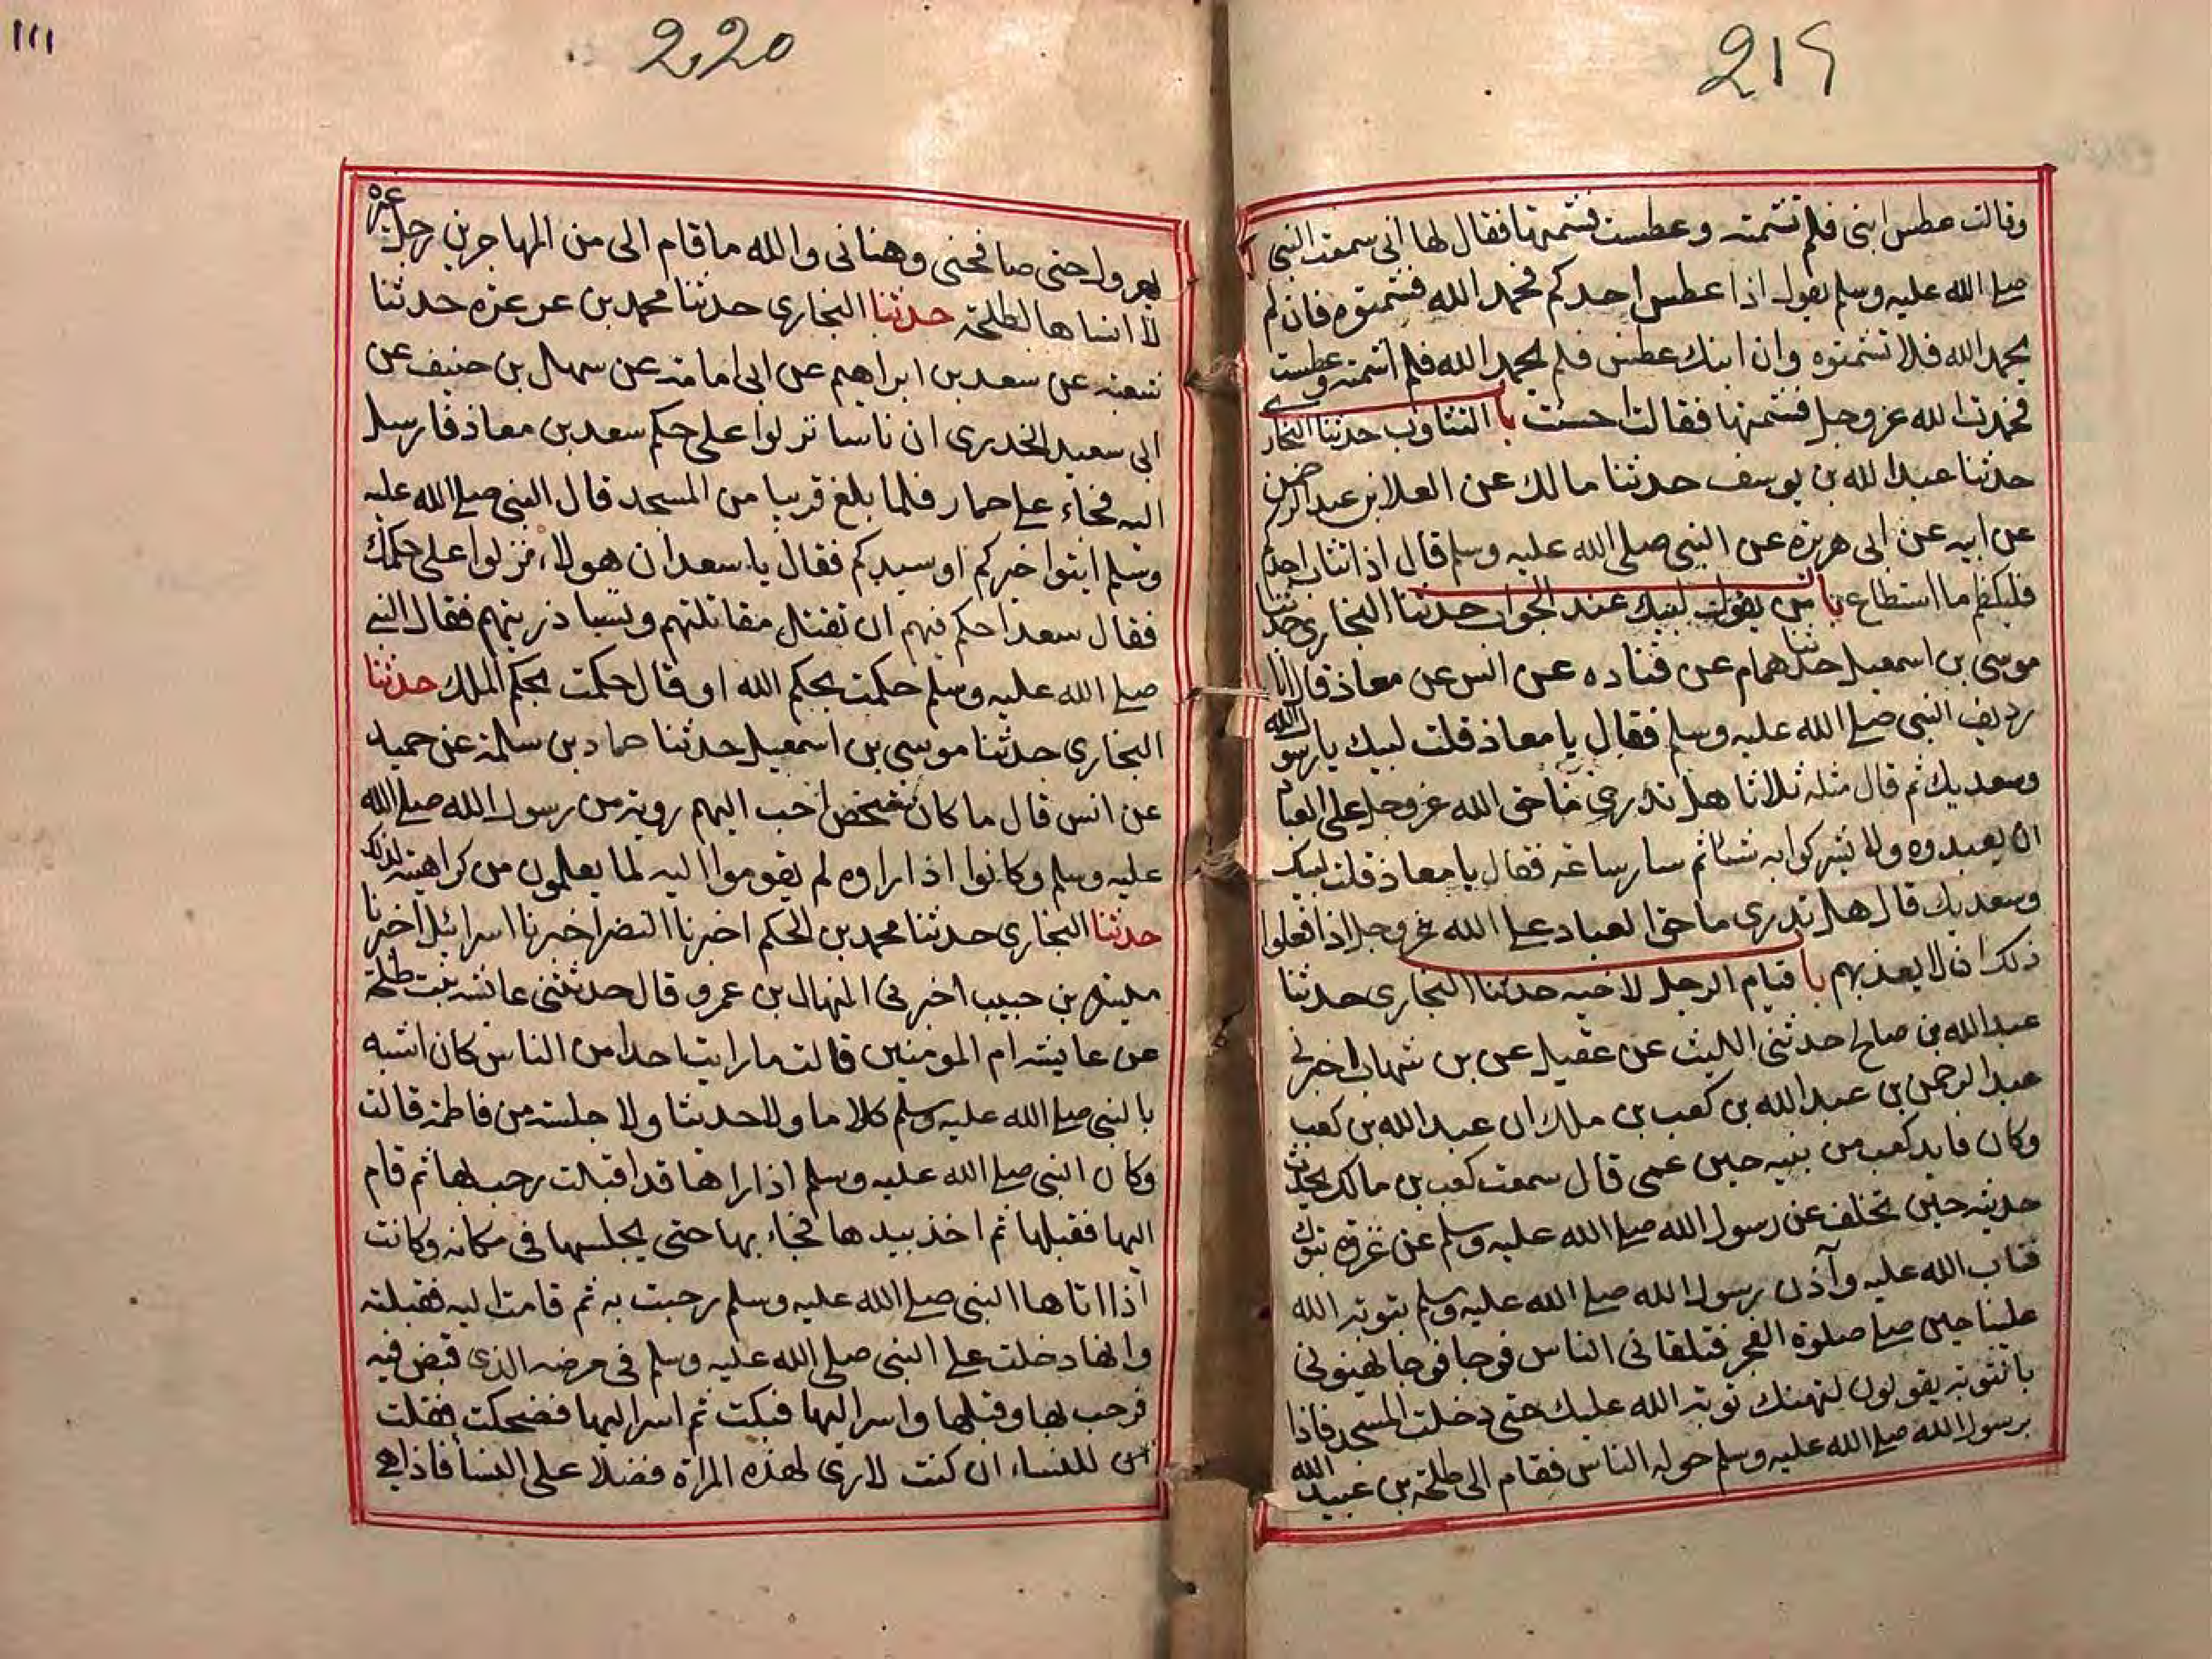 219
وقالت عطس ابنى فلم تشمته وعطست فشمتها فقال لها انى سمعت النبى
صلى الله عليه وسلم يقول اذا عطس احدكم فحمد الله فشمتوه فان لم
يحمد الله فلا تشمتوه وان ابنك عطس فلم يحمد الله فلم اشمته وعطست
فحمدت الله عز وجل فشمتها فقالت احسنت با التثاوب حدثنا البخارى
حدثنا عبد الله بن يوسف حدثنا مالك عن العلا بن عبد الرحمن
عن ابيه عن ابى هريرة عن النبى صلى الله عليه وسلم قال اذا تثاب احدكم
فليكظم ما استطاع با من يقول لبيك عند الجواب حدثنا البخارى حدثنا
موسى بن اسمعيل حدثنا همام عن قتاده عن انس عن معاذ قال انا
رديف النبى صلى الله عليه وسلم فقال يا معاذ قلت لبيك يا رسول الله
وسعديك ثم قال مثله ثلاثا هل تدرى ما حق الله عز وجل على العباد
ان يعبدوه ولا يشركوا به شيا ثم سار ساعة فقال يا معاذ قلت لبيك
وسعديك قال هل تدرى ما حق العباد على الله عز وجل اذا فعلوا
ذلك ان لا يعذبهم با قيام الرجل لاخيه حدثنا البخارى حدثنا
عبد الله بن صالح حدثنى الليث عن عقيل عن بن شهاب اخبرنى
عبد الرحمن بن عبد الله بن كعب بن ملك ان عبد الله بن كعب
وكان قايد كعب من بنيه حين عمى قال سمعت كعب بن مالك يحدث
حديثه حين تخلف عن رسول الله صلى الله عليه وسلم عن غزوة تبوك
فتاب الله عليه وآذن رسول الله صلى الله عليه وسلم بتوبة الله
علينا حين صلى صلوة الفجر فتلقانى الناس فوجا فوجا يهنونى
بالتوبة يقولون لتهنك توبة الله عليك حتى دخلت المسجد فاذا
برسول الله صلى الله عليه وسلم حوله الناس فقام الى طلحة بن عبيد الله
220
١١١
يهرول حتى صافحنى وهنانى والله ما قام الى من المهاجرين رجل غيره
لا انساها لطلحة حدثنا البخارى حدثنا محمد بن عرعره حدثنا
شعبة عن سعد بن ابراهيم عن ابى امامة عن سهل بن حنيف عن
ابى سعيد الخدرى ان ناسا نزلوا على حكم سعد بن معاذ فارسل
اليه فجاء على حمار فلما بلغ قريبا من المسجد قال النبى صلى الله عليه
وسلم ايتوا خيركم او سيدكم فقال يا سعد ان هولاء نزلوا على حكمك
فقال سعد احكم فيهم ان تقتل مقاتلتهم وتسبا ذريتهم فقال النبى
صلى الله عليه وسلم حكمت بحكم الله او قال حكمت بحكم الملك حدثنا
البخارى حدثنا موسى بن اسمعيل حدثنا حماد بن سلمة عن حميد
عن انس قال ما كان شخص احب اليهم روية من رسول الله صلى الله
عليه وسلم وكانوا اذا راوه لم يقوموا اليه لما يعلمون من كراهيته لذلك
حدثنا البخارى حدثنا محمد بن الحكم اخبرنا النضر اخبرنا اسرائيل اخبرنا
ميسرة بن حبيب اخبرنى المنهال بن عمرو قال حدثتنى عائشه بنت طلحة
عن عايشه ام المومنين قالت ما رايت احدا من الناس كان اشبه
بالنبى صلى الله عليه وسلم كلاما ولا حديثا ولا جلسة من فاطمة قالت
وكان النبى صلى الله عليه وسلم اذا راها قد اقبلت رحب بها ثم قام
اليها فقبلها ثم اخذ بيدها فجاء بها حتى يجلسها فى مكانه وكانت
اذا اتاها النبى صلى الله عليه وسلم رحبت به ثم قامت اليه فقبلته
وانها دخلت على النبى صلى الله عليه وسلم فى مرضه الذى قبض فيه
فرحب بها وقبلها واسر اليها فبكت ثم اسر اليها فضحكت فقلت
للنساء ان كنت لارى لهذه المراة فضلا على النسا فاذا هى